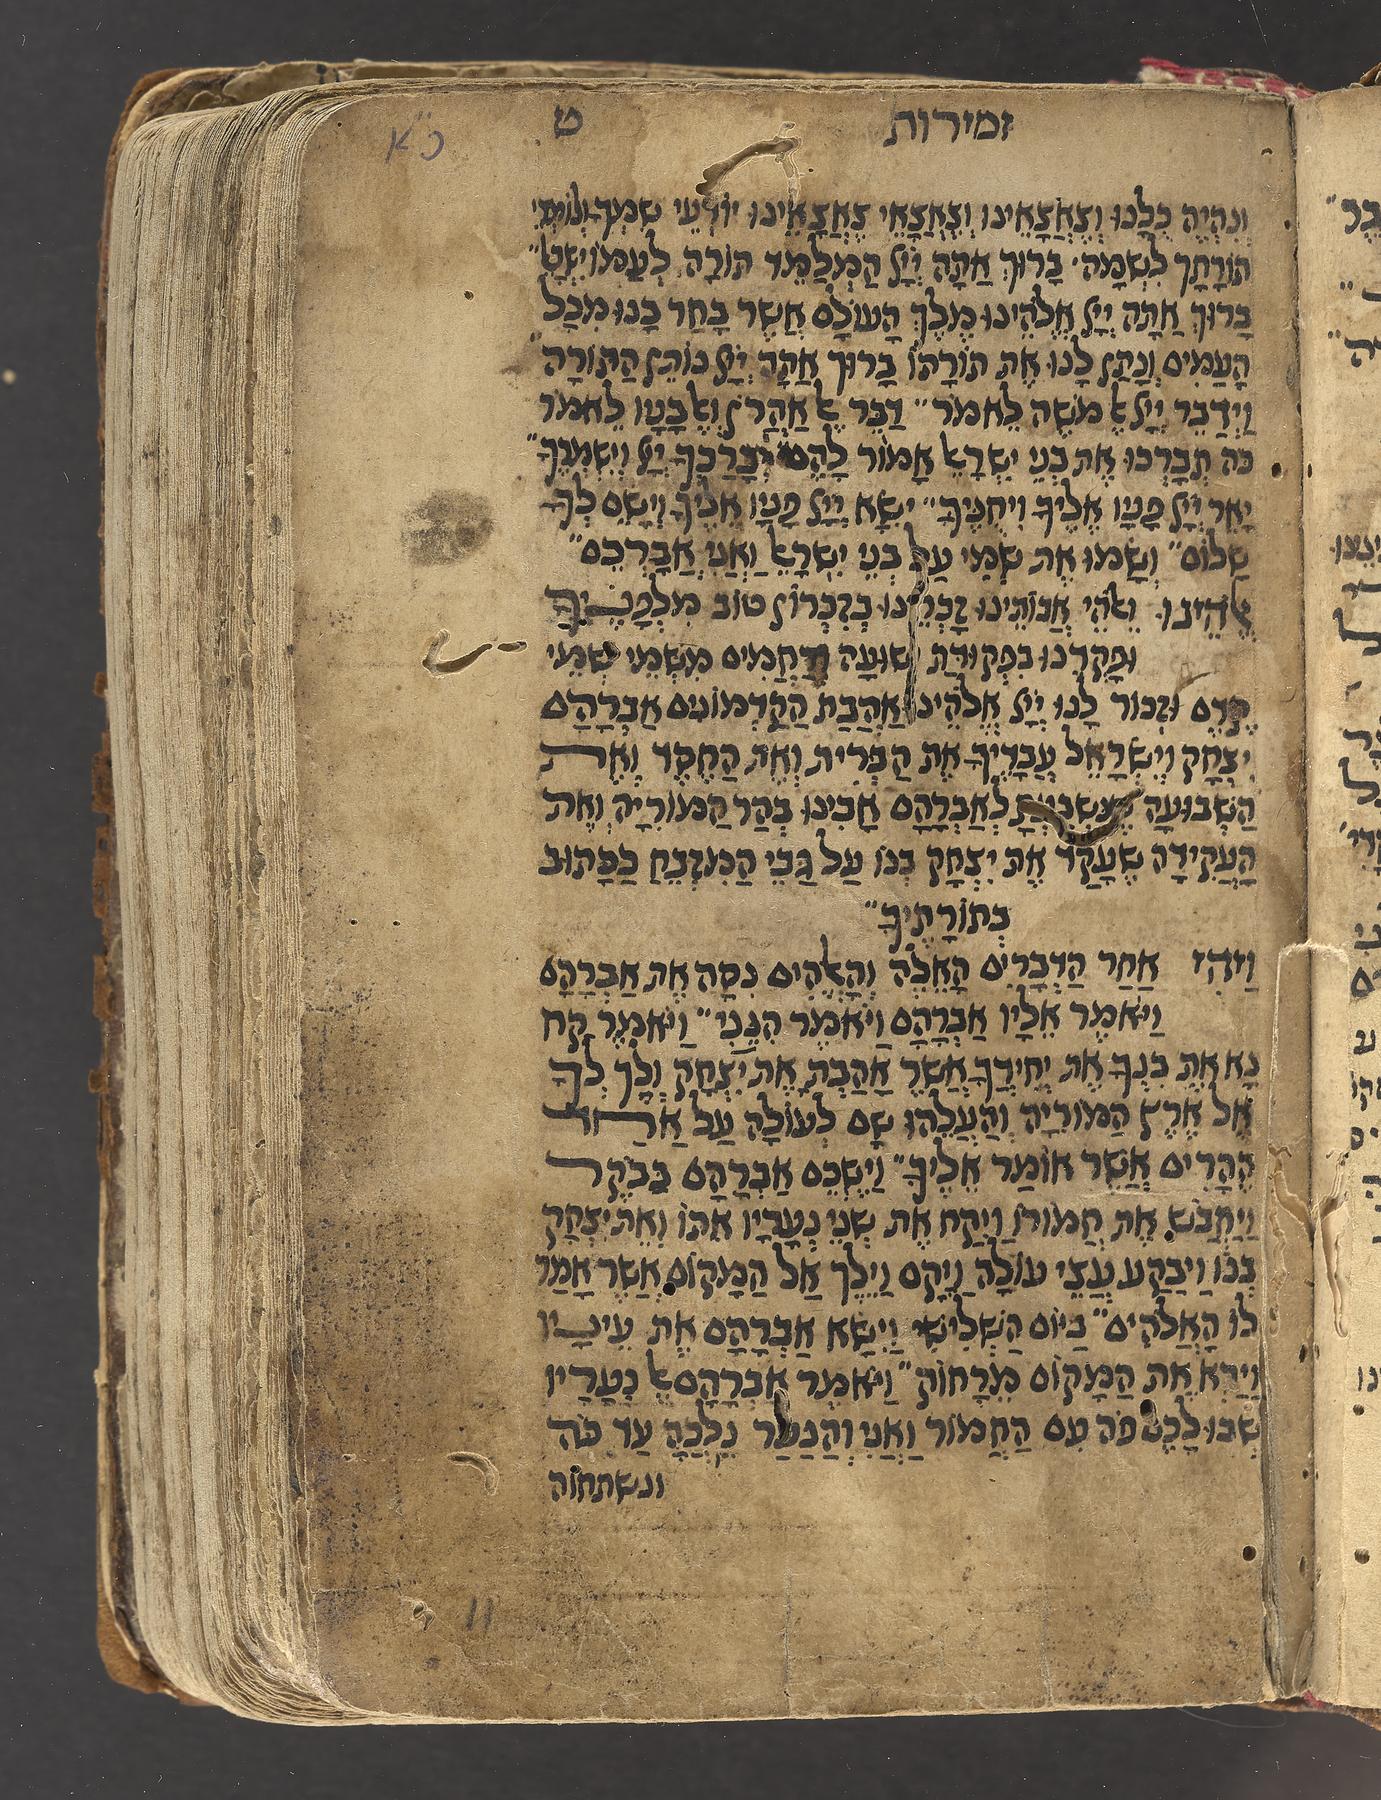 זמירות ט
כ״א
וְנִהְיֶה כֻלָנוּ וְצֶאֱצָאֵינוּ וְצֶאֱצָאֵי צֶאֱצָאֵינוּ יוֹדְעֵי שְׁמֶךָ וְלוֹמְדֵי
תוֹרָתָךְ לִשְׁמָהּ· בָּרוּךְ אַתָּה יְיָ הַמְלַמֵּד תּוֹרָה לְעַמּוֹ יִשְׂרָ״
בָּרוּךְ אַתָּה יְיָ אֱלֹהֵינוּ מֶלֶךְ הָעוֹלָם אֲשֶׁר בָּחַר בָּנוּ מִכָּל
הָעַמִּים וְנָתַן לָנוּ אֶת תּוֹרָתוֹ בָּרוּךְ אַתָּה יְיָ נוֹתֵן הַתּוֹרָה״
וַיְדַבֵּר יְיָ אֶל מֹשֶׁה לֵאמֹר״ דַּבֵּר אֶל אַהֲרֹן וְאֶל בָּנָיו לֵאמֹר
כֹּה תְבָרְכוּ אֶת בְּנֵי יִשְׂרָאֵל אָמוֹר לָהֶם יְבָרֶכְךָ יְיָ וְיִשְׁמְרֶךָ״
יָאֵר יְיָ פָּנָיו אֵלֶיךָ וִיחֻנֶּיךָּ״ יִשָּׂא יְיָ פָּנָיו אֵלֶיךָ וְיָשֵׂם לְךָ
שָׁלוֹם״ וְשָׂמוּ אֶת שְׁמִי עַל בְּנֵי יִשְׂרָאֵל וַאֲנִי אֲבָרְכֵם״
אֱלֹהֵינוּ וֵאלֹהֵי אֲבוֹתֵינוּ זָכְרֵנוּ בְּזִכְרוֹן טוֹב מִלְּפָנֶיךָ
וּפָקְדֵנוּ בִּפְקוּדַת יְשׁוּעָה וְרַחֲמִים מִשְּׁמֵי שְׁמֵי
קֶדֶם וּזְכוֹר לָנוּ יְיָ אֱלֹהֵינוּ אַהֲבַת הַקַּדְמוֹנִים אַבְרָהָם
יִצְחָק וְיִשְׂרָאֵל עֲבָדֶיךָ אֶת הַבְּרִית וְאֶת הַחֶסֶד וְאֶת
הַשְּׁבוּעָה שֶׁנִּשְׁבַּעְתָּ לְאַבְרָהָם אָבִינוּ בְּהַר הַמּוֹרִיָּה וְאֶת
הָעֲקֵידָה שֶׁעָקַד אֶת יִצְחָק בְּנוֹ עַל גַּבֵּי הַמִּזְבֵּחַ כַּכָּתוּב
בְּתוֹרָתֶיךָ״
וַיְהִי אַחַר הַדְּבָרִים הָאֵלֶּה וְהָאֱלֹהִים נִסָּה אֶת אַבְרָהָם
וַיֹּאמֶר אֵלָיו אַבְרָהָם וַיֹּאמֶר הִנֵּנִי״ וַיֹּאמֶר קַח
נָא אֶת בִּנְךָ אֶת יְחִידְךָ אֲשֶׁר אָהַבְתָּ אֶת יִצְחָק וְלֶךְ לְךָ
אֶל אֶרֶץ הַמּוֹרִיָּה וְהַעֲלֵהוּ שָׁם לְעוֹלָה עַל אַחַד
הֶהָרִים אֲשֶׁר אוֹמַר אֵלֶיךָ״ וַיַּשְׁכֵּם אַבְרָהָם בַּבֹּקֶר
וַיַּחֲבֹשׁ אֶת חֲמוֹרוֹ וַיִּקַּח אֶת שְׁנֵי נְעָרָיו אִתּוֹ וְאֶת יִצְחָק
בְּנוֹ וַיְבַקַּע עֲצֵי עוֹלָה וַיָּקָם וַיֵּלֶךְ אֶל הַמָּקוֹם אֲשֶׁר אָמַר
לוֹ הָאֱלֹהִים״ בַּיּוֹם הַשְּׁלִישִׁי וַיִּשָּׂא אַבְרָהָם אֶת עֵינָיו
וַיַּרְא אֶת הַמָּקוֹם מֵרָחוֹק״ וַיֹּאמֶר אַבְרָהָם אֶל נְעָרָיו
שְׁבוּ לָכֶם פֹּה עִם הַחֲמוֹר וַאֲנִי וְהַנַּעַר נֵלְכָה עַד כֹּה
ונשתחוה
11